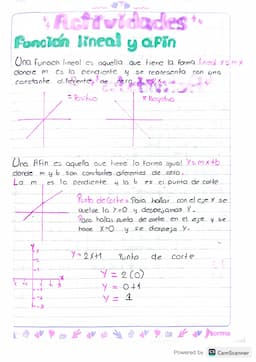 Actividades
Función lineal y afín
Una función lineal es aquella que tiene la forma lineal y=mx
donde m es la pendiente y se representa con una
constante diferente de cero.
Positivo
Negativo
Una Afín es aquella que tiene la forma igual y=mx+b
donde m y b son constantes diferentes de cero.
La m es la pendiente y la b es el punto de corte
Punto de corte: Para hallar con el eje x se
vuelve la y=0 y despejamos x.
Para hallar punto de corte en el eje y se
hace x=0 y se despeja y.
y=2x+1 Punto de corte
y=2(0)
y=0+1
y=1
Norma
Powered by CamScanner